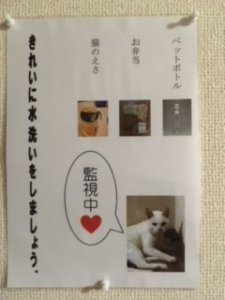 ペットボトル
お弁当
猫のえさ
監視中
きれいに水洗いをしましょう.